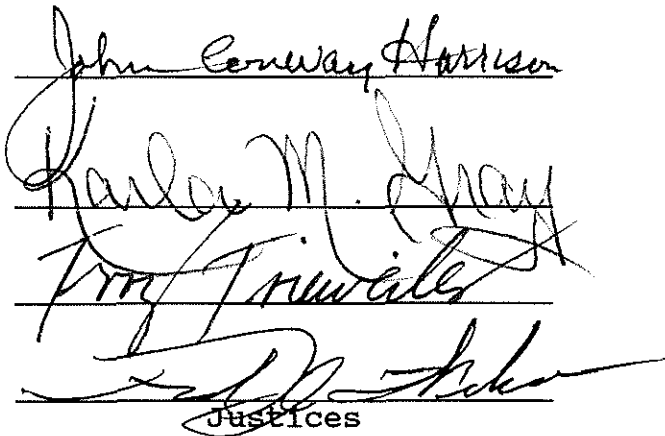 John Conway Harrison
Karla M. Gray
Terry Trieweiler
Justices